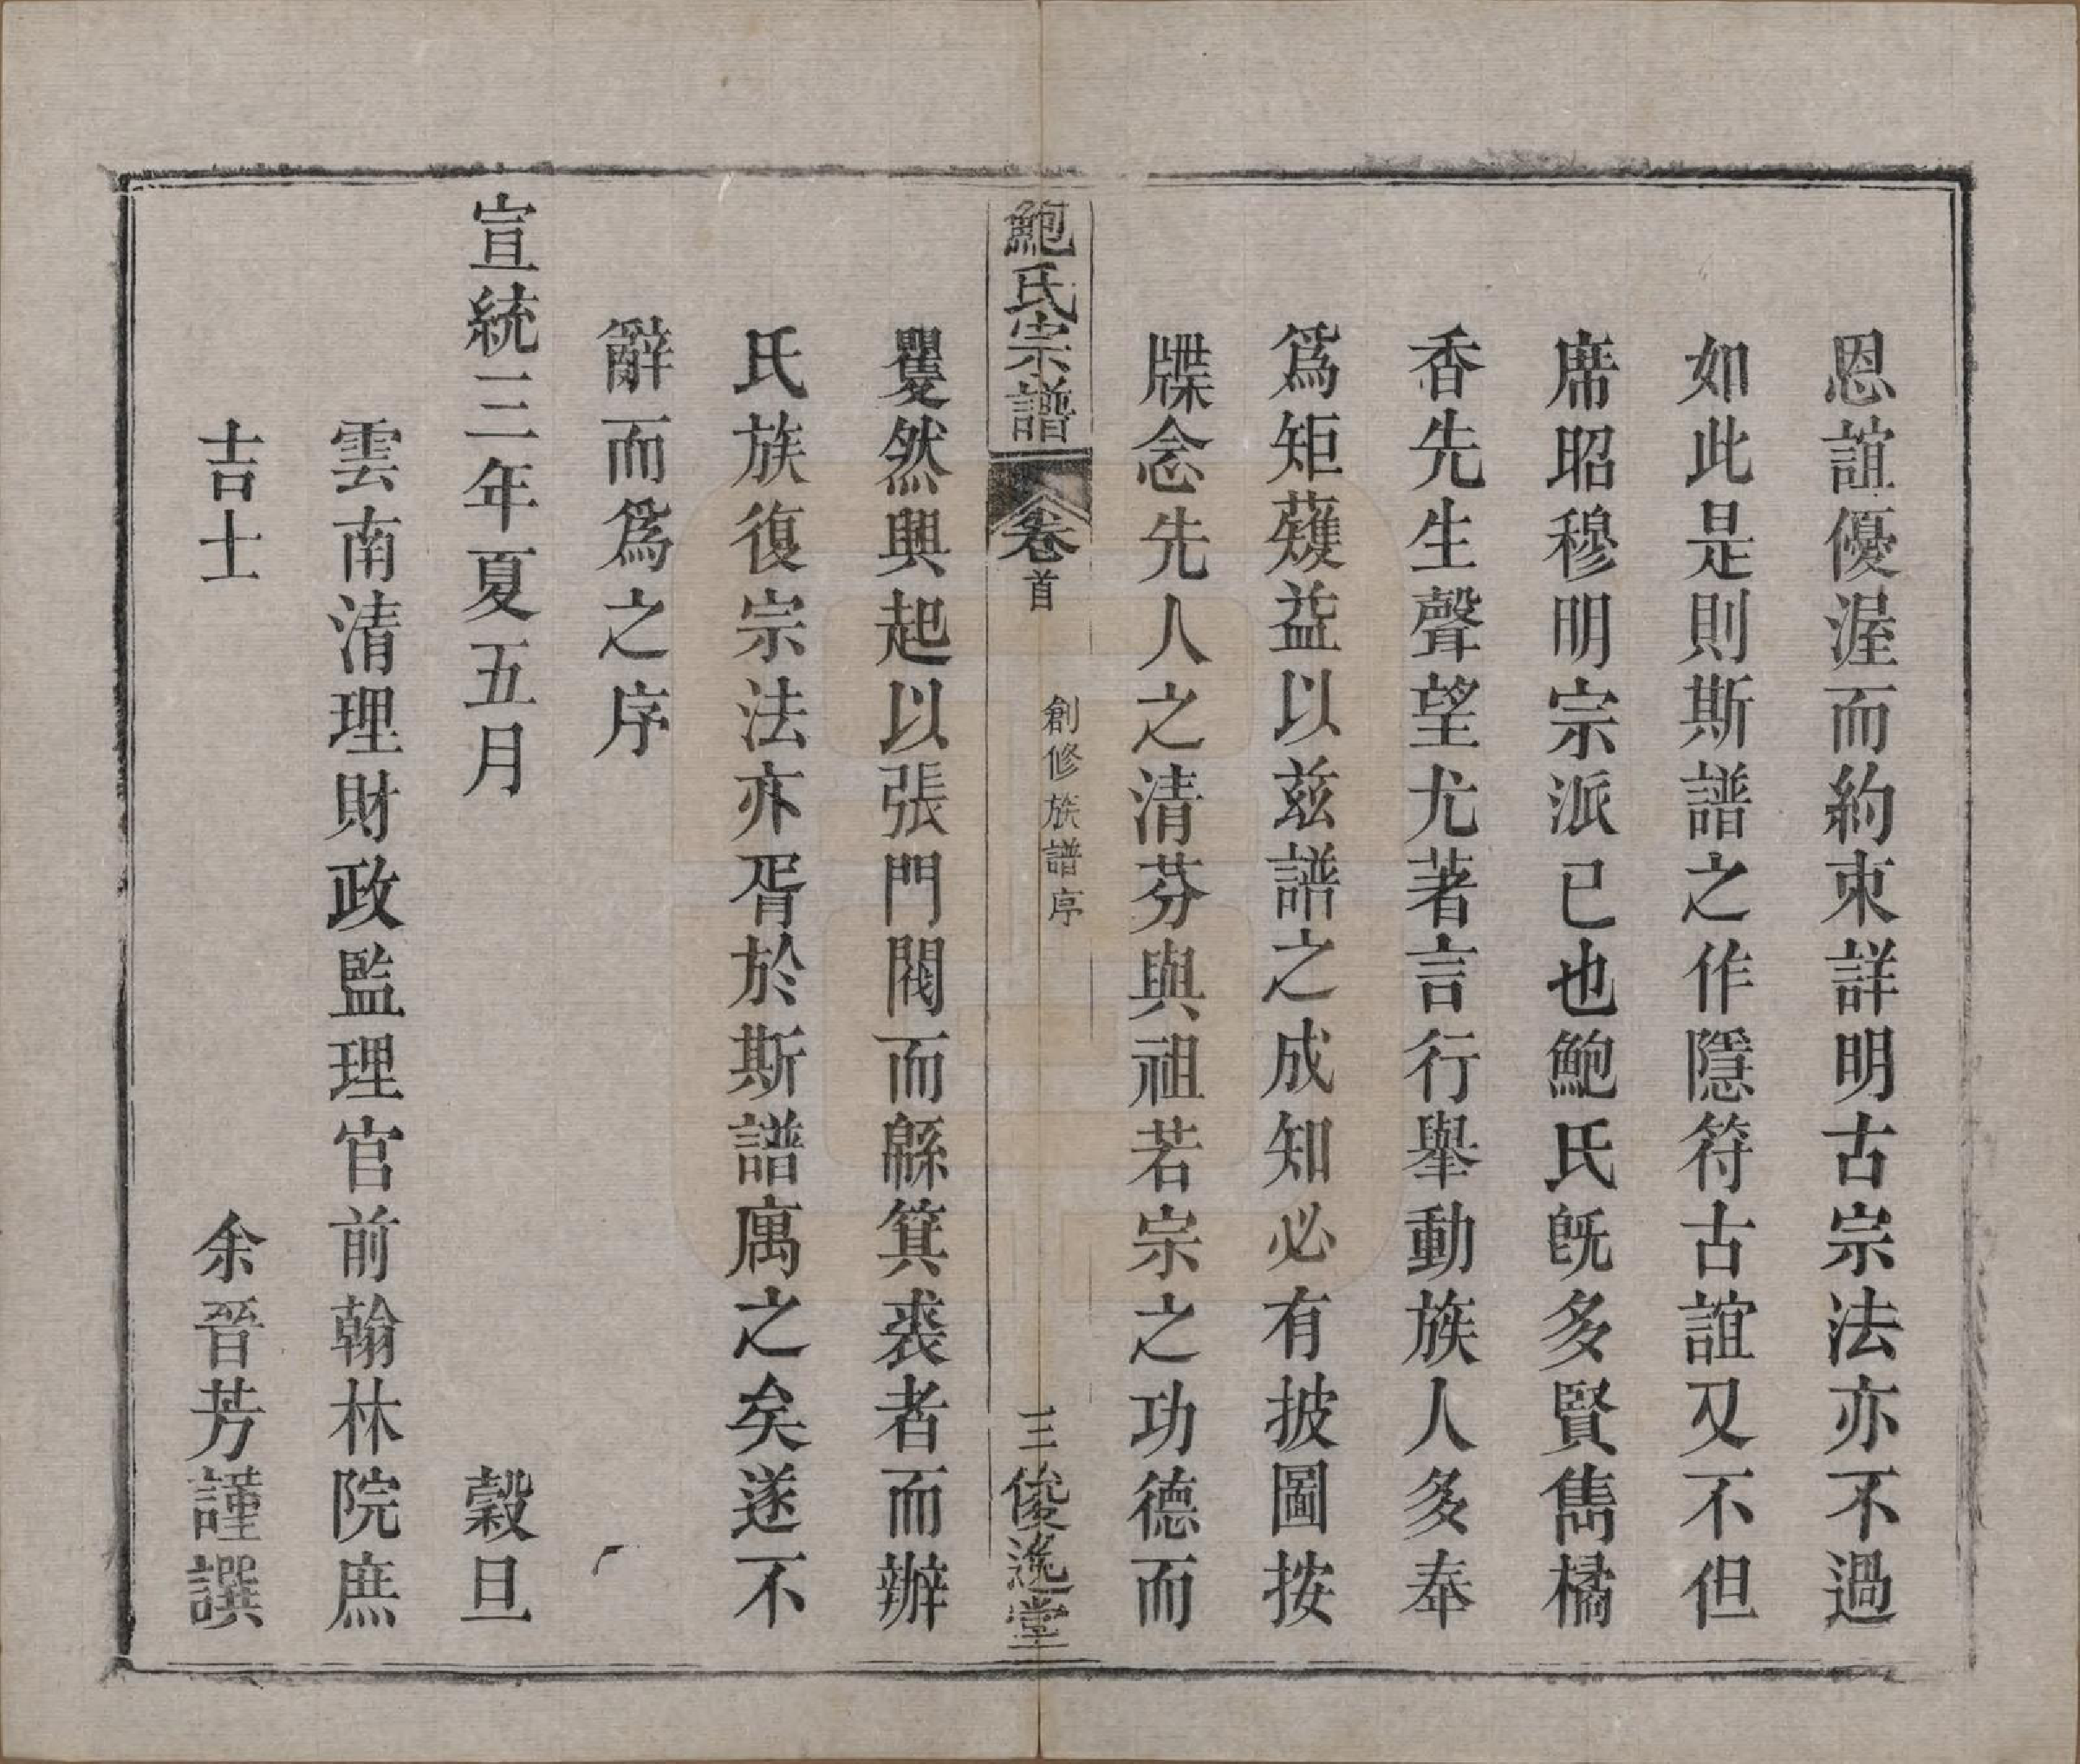 恩誼優渥而約束詳明古宗法亦不過
如此是則斯譜之作隱符古誼又不但
席昭穆明宗派已也鮑氏旣多賢雋橘
香先生聲望尤著言行舉動族人多奉
爲矩蒦益以茲譜之成知必有披圖按
牒念先人之清芬與祖若宗之功德而
鮑氏宗譜 卷首 創修族譜序 三 俊逸堂
矍然興起以張門閥而緜箕裘者而辦
氏族復宗法亦胥於斯譜寓之矣遂不
辭而爲之序
宣統三年夏五月 穀旦
雲南清理財政監理官前翰林院庶
吉士 余晉芳謹譔